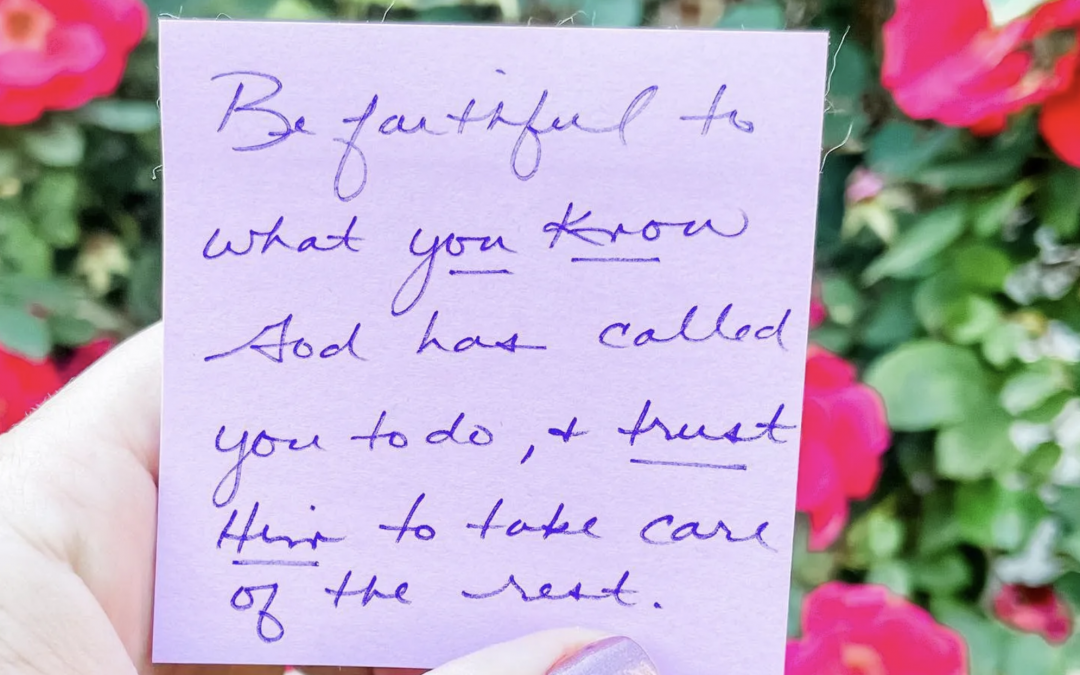 Be faithful to
what you know
God has called
you to do, & trust
Him to take care
of the rest.